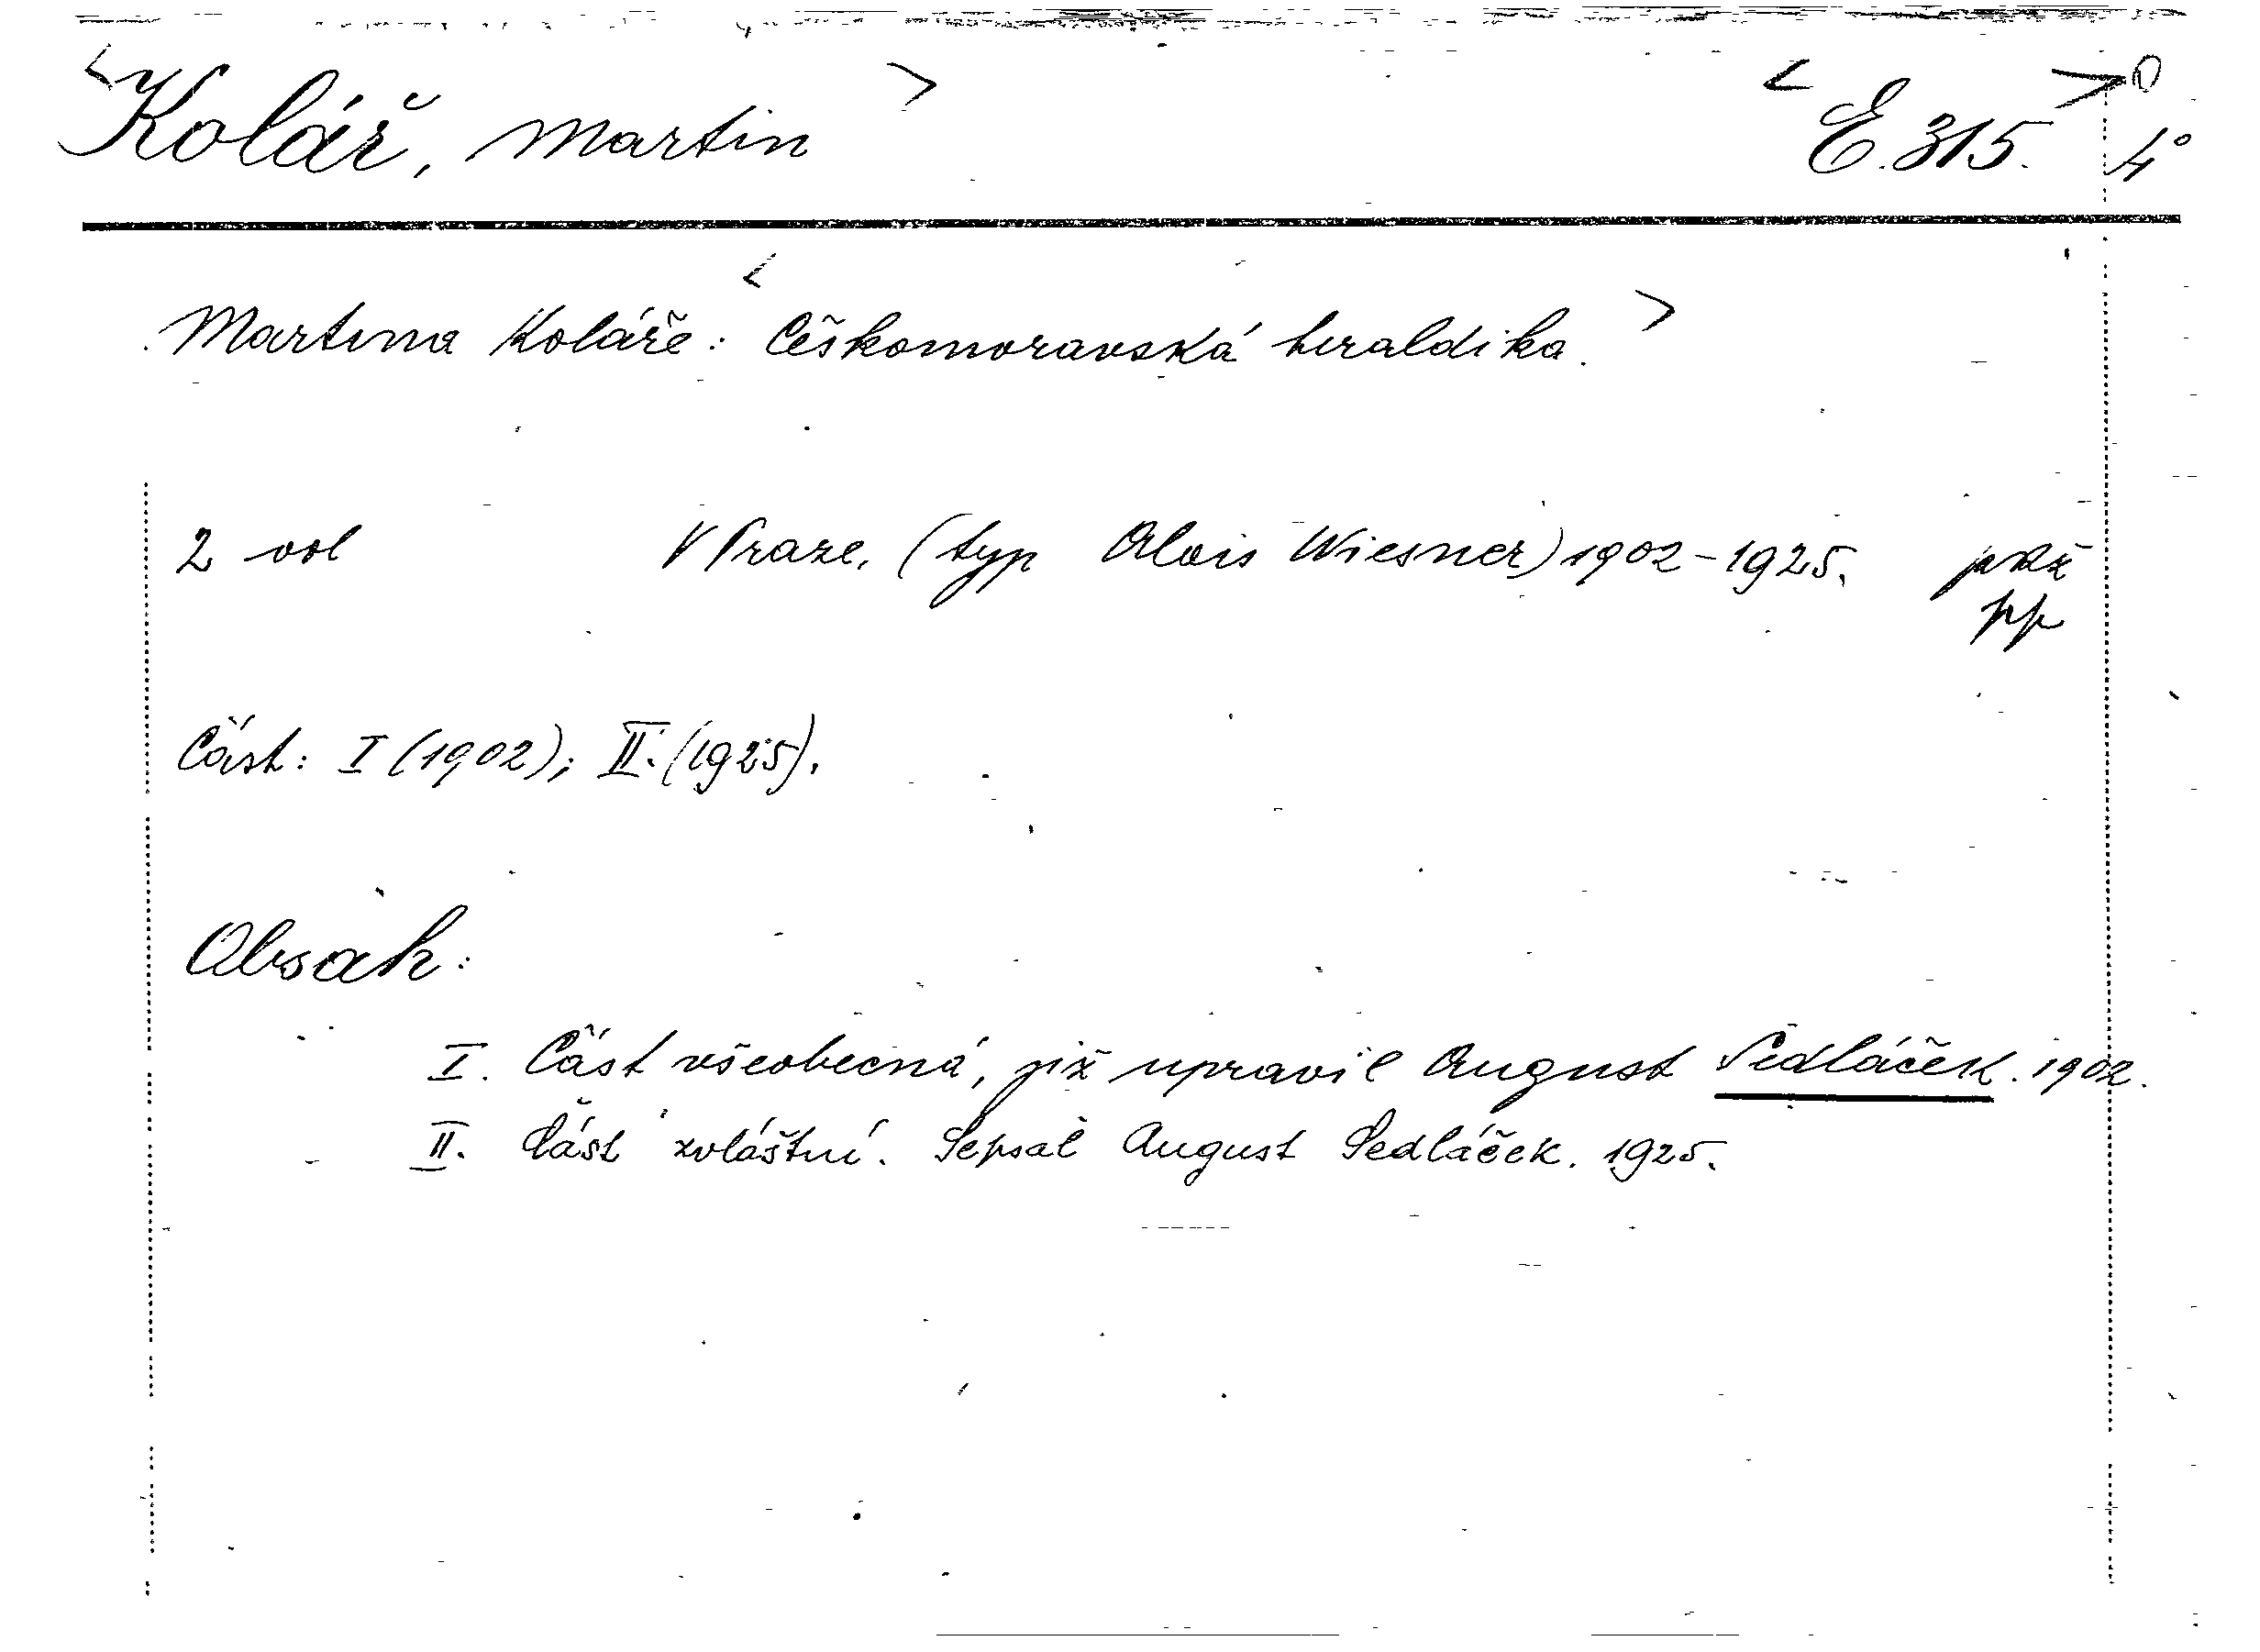 <Kolář, Martin> <E.315.> 4°
Martina Koláře: <Českomoravská heraldika.>
2 vol V Praze, (typ Alois Wiesner) 1902-1925.
pp
Část: I (1902); II. (1925).
Obsah:
I. Část všeobecná, již upravil August Sedláček. 1902.
II. Část zvláštní. Sepsal August Sedláček. 1925.